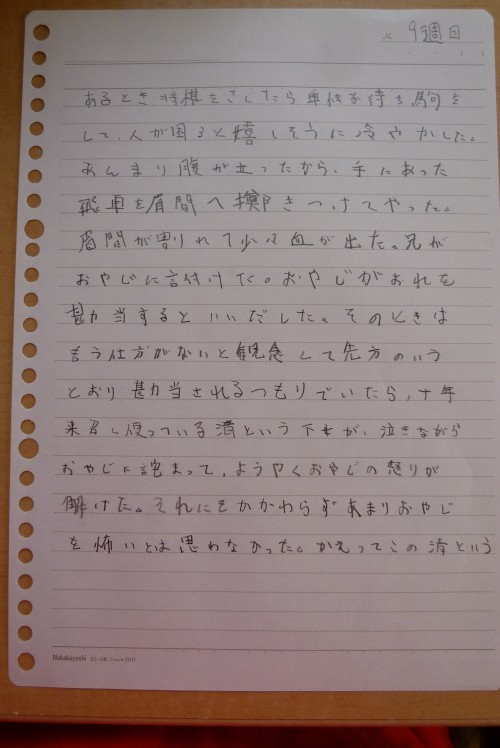 9週目
あるとき将棋をさしたら卑怯な待ち駒を
して、人が困ると嬉しそうに冷やかした。
あんまり腹が立ったから、手にあった
飛車を眉間へ擲きつけてやった。
眉間が割れて少々血が出た。兄が
おやじに言付けた。おやじがおれを
勘当するといいだした。そのときは
もう仕方がないと観念して先方のいう
とおり勘当されるつもりでいたら、十年
来召し使っている清という下女が、泣きながら
おやじに詫まって、ようやくおやじの怒りが
解けた。それにもかかわらずあまりおやじ
を怖いとは思わなかった。かえってこの清という
Nakabayashi